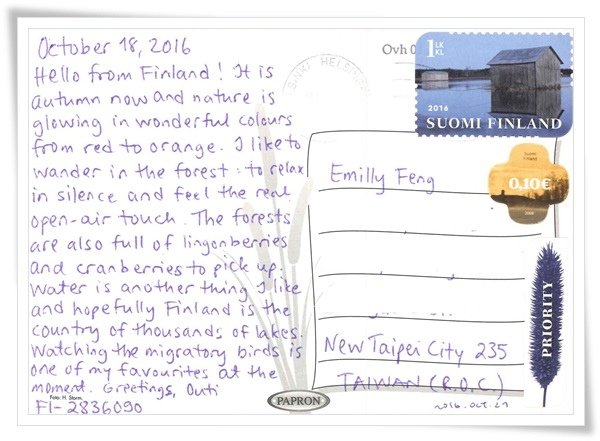 October 18, 2016
Hello from Finland! It is
autumn now and nature is
glowing in wonderful colours
from red to orange. I like to
wander in the forest: to relax
in silence and feel the real
open-air touch. The forests
are also full of lingonberries
and cranberries to pick up.
Water is another thing I like
and hopefully Finland is the
country of thousands of lakes.
Watching the migratory birds is
one of my favourites at the
moment. Greetings, Outi
Foto: H. Storm.
FI-2836090
Ovh 0
1 LK
KL
2016
SUOMI FINLAND
Emilly Feng
Suomi
Finland
0,10€
2008
PRIORITY
New Taipei City 235
TAIWAN (R.O.C.)
PAPRON
2016.Oct.27